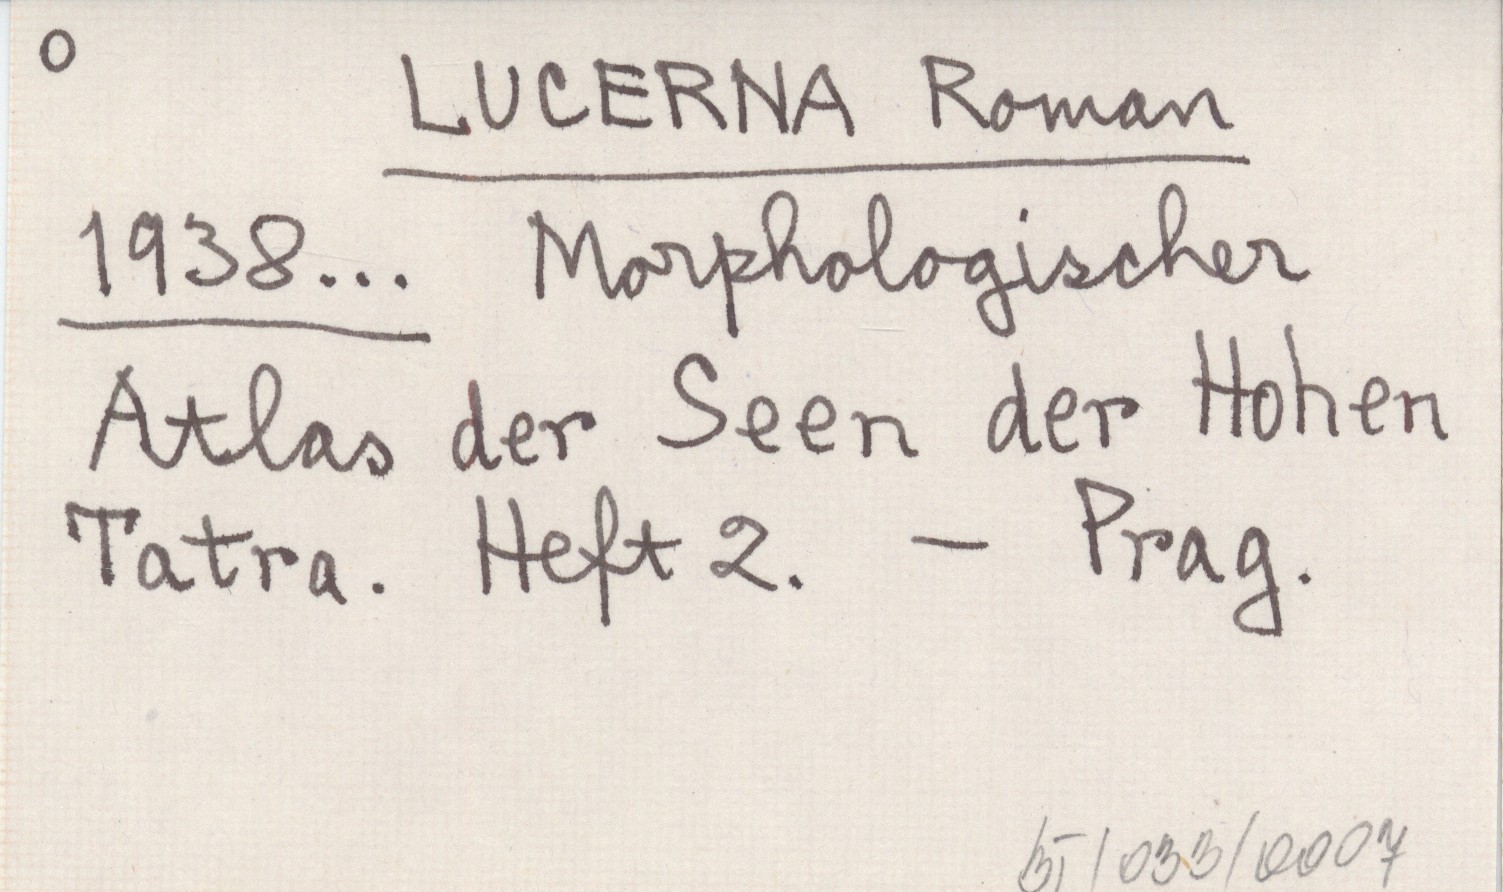 o
LUCERNA Roman
1938... Morphologischer
Atlas der Seen der Hohen
Tatra. Heft 2. — Prag.
/033/0007